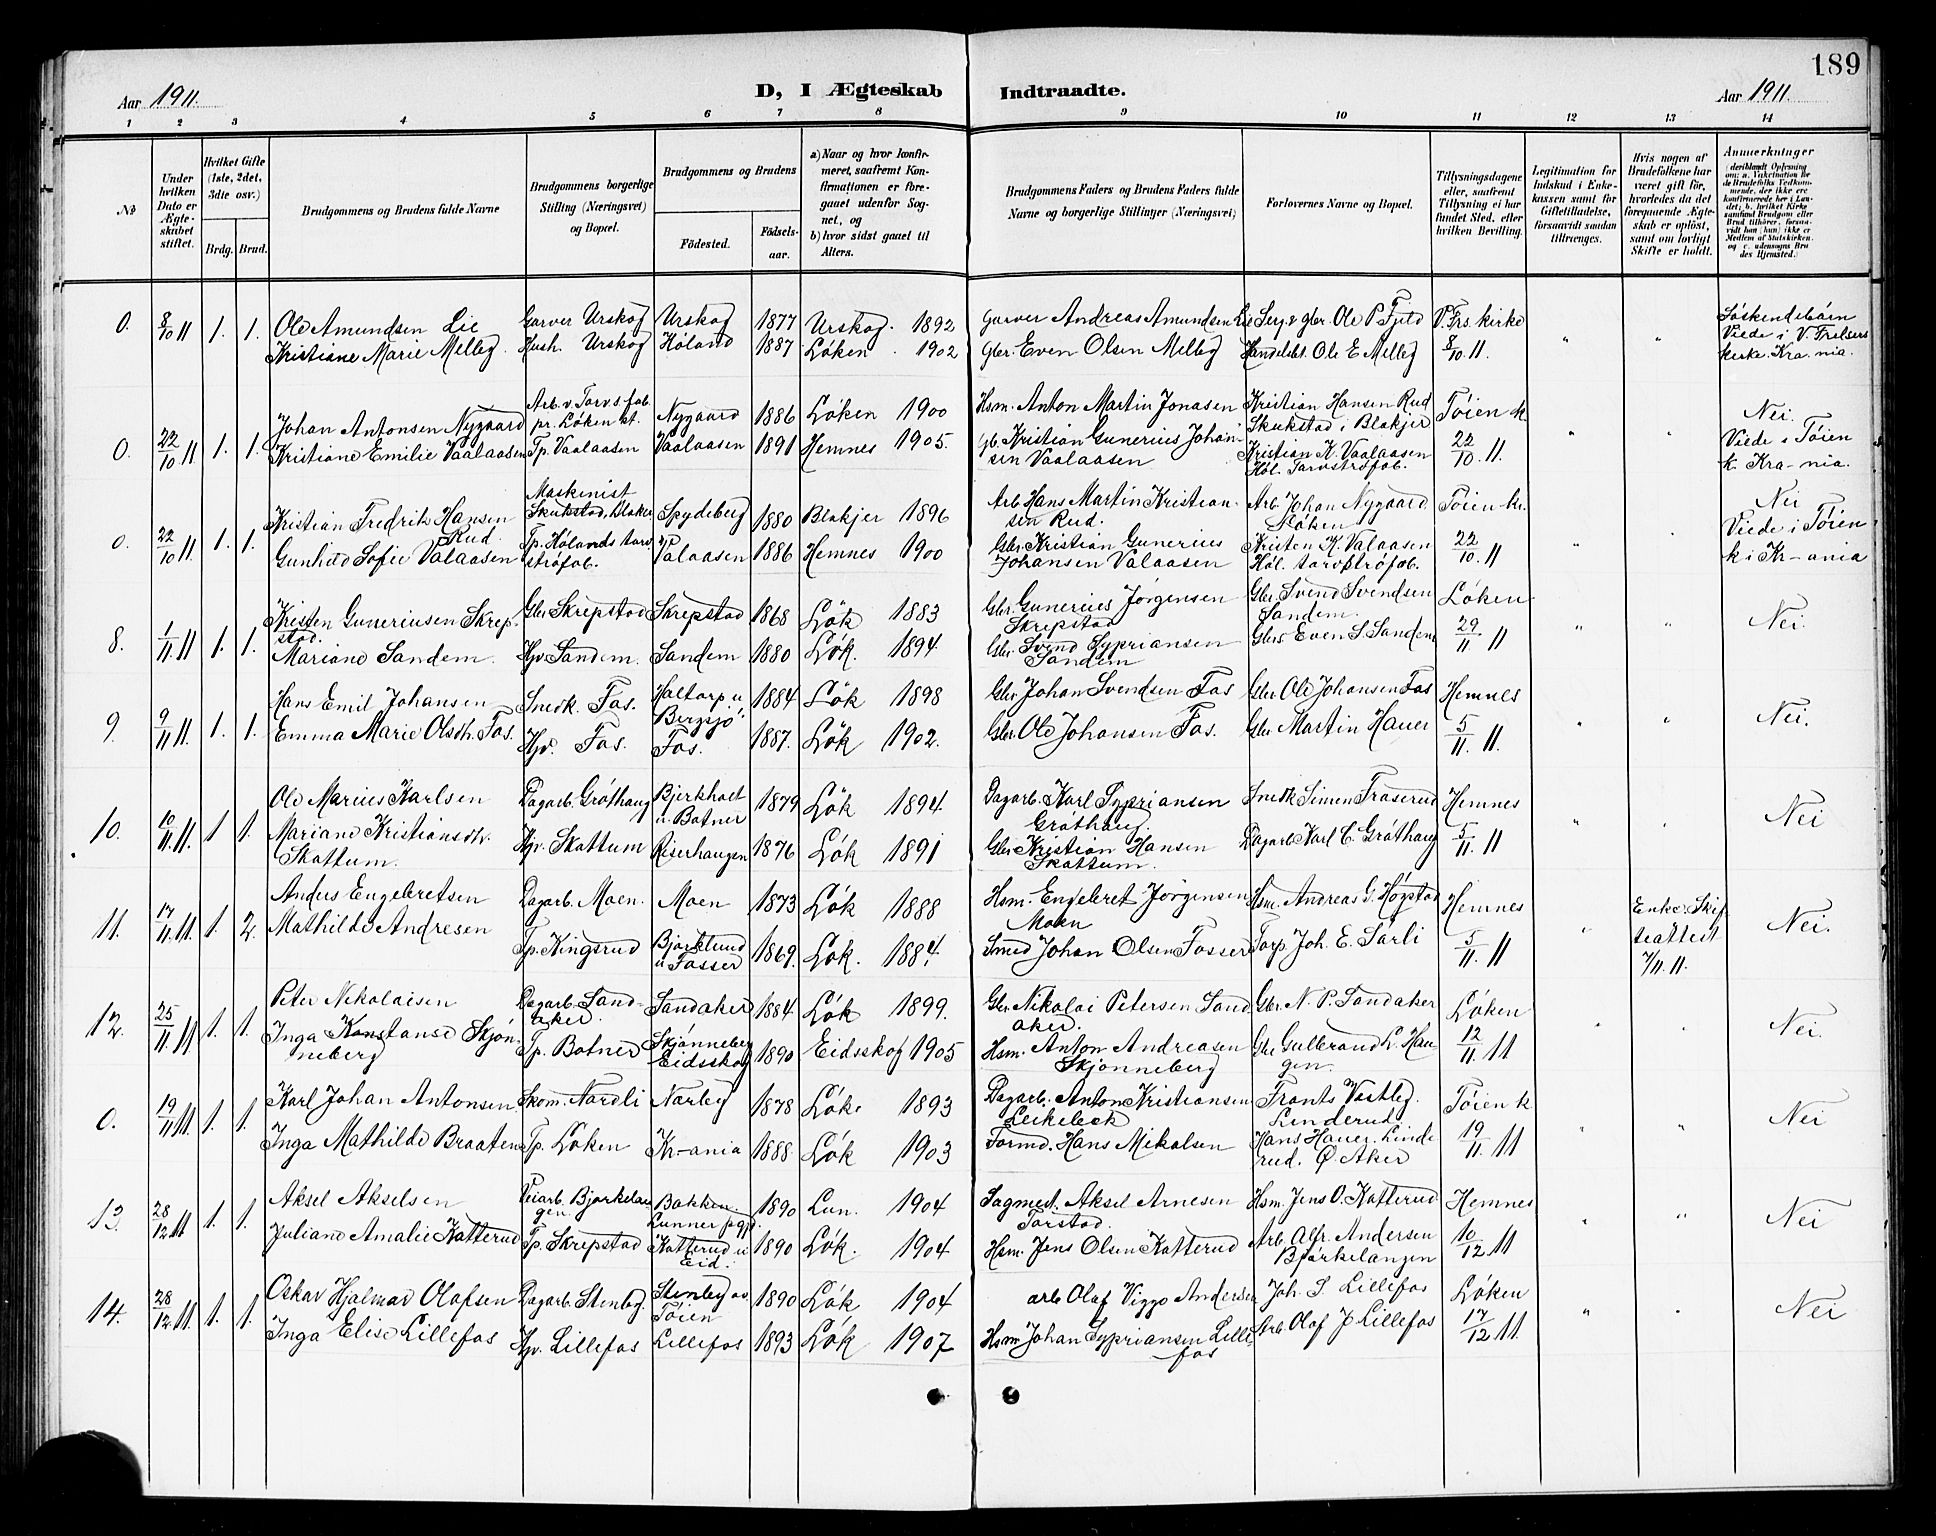 189
Aar 1911. D, I Ægteskab Indtraadte. Aar 1911.
1 2 3 4 5 6 7 8 9 10 11 12 13 14
No.
Under hvilken Dato er Ægteskabet stiftet.
Hvilket Gifte (1ste, 2det, 3die osv.)
Brdg. Brud.
Brudgommens og Brudens fulde Navne
Brudgommens borgerlige Stilling (Næringsvei) og Bopæl.
Brudgommens og Brudens
Fødested. Fødsels-aar.
a) Naar og hvor konfirmeret, saafremt Konfirmationen er foregaaet udenfor Sognet, og
b) hvor sidst gaaet til Alters.
Brudgommens Faders og Brudens Faders fulde Navne og borgerlige Stillinger (Næringsvei)
Forlovernes Navne og Bopæl.
Tillysningsdagene eller, saafremt Tillysning ei har fundet Sted, efter hvilken Bevilling.
Legitimation for Indskud i Enkekassen samt for Giftetilladelse, forsaavidt saadan tiltrænges.
Hvis nogen af Brudefolkene har været gift før, hvorledes da det foregaaende Ægteskab er opløst, samt om lovligt Skifte er holdt.
Anmerkninger
(deriblandt Oplysning om: a. Vakcination for de Brudefolks Vedkommende, der ikke ere konfirmerede her i Landet; b. hvilket Kirkesamfund Brudgom eller Brud tilhører, forsaavidt han (hun) ikke er Medlem af Statskirken, og c. udensogns Brudes Hjemsted.)
0. 8/10 11 1. 1. Ole Amundsen Lie Garver Urskog Urskog 1877 Urskog. 1892 Garver Andreas Amundsen Lie Serg. & gbr. Ole P Fjeld V. Frs. kirke " " Søskendebørn
Kristiane Marie Melleg. Hush. Urskog Høland 1887 Løken. 1902 Gbr. Even Olsen Melleg Handelsbt. Ole E Melleg 8/10 11. Viede i V. Frelsers kirke. Kra-nia.
0. 22/10 11 1. 1. Johan Antonsen Nygaard Arb. v. Torvs.fab. pr. Løken st. Nygaard 1886 Løken 1900 Hsm. Anton Martin Jonasen Kristian Hansen Rud Skukstad i Blakjer Tøien k " " Nei.
Kristiane Emilie Vaalaasen Tp. Vaalaasen Vaalaasen 1891 Hemnes 1905. gb. Kristian Gunerius Johansen Vaalaasen Kristian K. Vaalaasen Høl. Torvstrøfab. 22/10. 11. Viede i Tøien k. Kra-nia.
0. 22/10 11 1. 1. Kristian Fredrik Hansen Rud. Maskenist Skukstad, Blaker Spydeberg 1880 Blakjer 1896 Arb Hans Martin Kristiansen Rud. Arb. Johan Nygaard Løken Tøien kr. " " Nei
Gunhild Sofie Valaasen Tp. Hølands torvstrøfab. Valaasen 1886 Hemnes 1900 Gbr. Kristian Gunerius Johansen Valaasen Kristen K. Valaasen Høl. torvstrøfab. 22/10. 11 Viede i Tøien k i Kr-ania
8. 1/11 11 1. 1. Kristen Guneriusen Skrepstad. Gbr Skrepstad Skrepstad 1868 Løk 1883 Gbr. Gunerius Jørgensen Skrepstad Gbr. Svend Svendsen Sandem. Løken " " Nei.
Mariane Sandem. Hjv. Sandem. Sandem 1880 Løk. 1894 Gbr. Svend Sypriansen Sandem Gbr. Even S. Sandem 29/11. 11
9. 9/11 11 1. 1. Hans Emil Johansen Snedk. Fos. Haltorp u Bergsjø 1884 Løk 1898 Gbr. Johan Svendsen Fos Gbr Ole Johansen Fos Hemnes " " Nei.
Emma Marie Olsdh. Fos. Hjv. Fos. Fos. 1887. Løk 1902. Gbr. Ole Johansen Fos. Gbr Martin Hauer 5/11. 11.
10. 10/11 11. 1 1. Ole Marius Karlsen Dagarb. Grøthaug Bjerkholt u. Botner 1879 Løk 1894. Dagarb. Karl Sypriansen Grøthaug. Snedk Simen Fraserud Hemnes " " Nei
Mariane Kristiansdtr. Skattum. Hjv. Skattum Riserhaugen 1876 Løk 1891 Gbr Kristian Hansen Skattum. Dagarb Karl C. Grøthaug 5/11. 11
11. 17/11 11. 1. 2. Anders Engebretsen Dagarb. Moen. Moen 1873 Løk 1888 Hsm. Engebret Jørgensen Moen Hsm. Andreas G. Høgstad Hemnes " Enke. Skifteattest 7/11 11. Nei.
Mathilde Andresen Tp. Kingsrud Bjørklund u Fosser 1869. Løk. 1884. Smed Johan Olsen Fosser Torp. Joh. E. Sørli 5/11. 11
12. 25/11 11 1. 1. Peter Nikolaisen Dagarb. Sandaker. Sandaker 1884. Løk 1899. Gbr. Nikolai Petersen Sandaker. Gbr. N. P. Sandaker Løken " " Nei.
Inga Konstanse Skjønneberg Tp. Botner Skjønneberg Eidsskog 1890 Eidsskog 1905 Hsm. Anton Andreasen Skjønneberg Gbr Gulbrand L. Haugen. 12/11. 11
0. 19/11 11. 1. 1. Karl Johan Antonsen. Skom. Nordli Norby 1878 Løk. 1893 Dagarb. Anton Kristiansen Leikebek Frants Vestby. Linderud. Tøien k " " Nei
Inga Mathilde Braaten Tp. Løken Kr-ania 1888. Løk 1903 Formd. Hans Mikalsen Hans Hauer. Linderud. Ø. Aker 19/11. 11
13. 28/12 11 1. 1. Aksel Akselsen Veiarb. Bjørkelangen. Bakken. Lunner pgj. 1890 Lun. 1904 Sagmest. Aksel Arnesen Torstad. Hsm. Jens O. Kotterud Hemnes " " Nei
Juliane Amalie Kotterud Tp. Skrepstad Kotterud u Eid. 1890 Løk. 1904 Hsm. Jens Olsen Kotterud Arb. Alfr. Andersen Bjørkelangen 10/12 11
14. 28/12 11. 1. 1. Oskar Hjalmar Olafsen Dagarb. Stenbg. Stenbeg av Tøien 1890 Løk 1904 arb Olaf Viggo Andersen Joh. S. Lillefos Løken " " Nei
Inga Elise Lillefos Hjv. Lillefos Lillefos 1893 Løk 1907 Hsm Johan Sypriansen Lillefos Arb. Olaf J Lillefos 17/12 11.